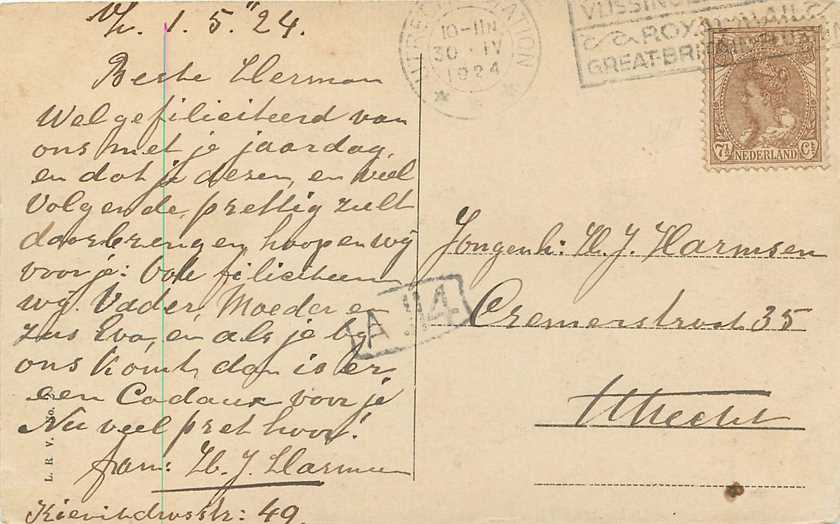 Ut. 1.5."24.
Beste Herman
Wel gefiliciteerd van
ons met je jaardag,
en dat je dezen, en veel
volgende, prettig zult
doorbrengen, hoopen wij
voor je: Ook filiciteeren
wij. Vader, Moeder en
zus Eva, en als je bij
ons komt, dan is er
een Cadaux voor je
Nu veel pret hoor!
fam: H. J. Harmsen
Kievitdwsstr: 49.
L. R. V. No.
UTRECHT STATION
10-11N
30 IV
1924
VLISSINGEN
ROYAL MAIL
GREAT-BRITAIN
7½ NEDERLAND Ct
Jongenh: H. J. Harmsen
Cremerstraat 35
Utrecht